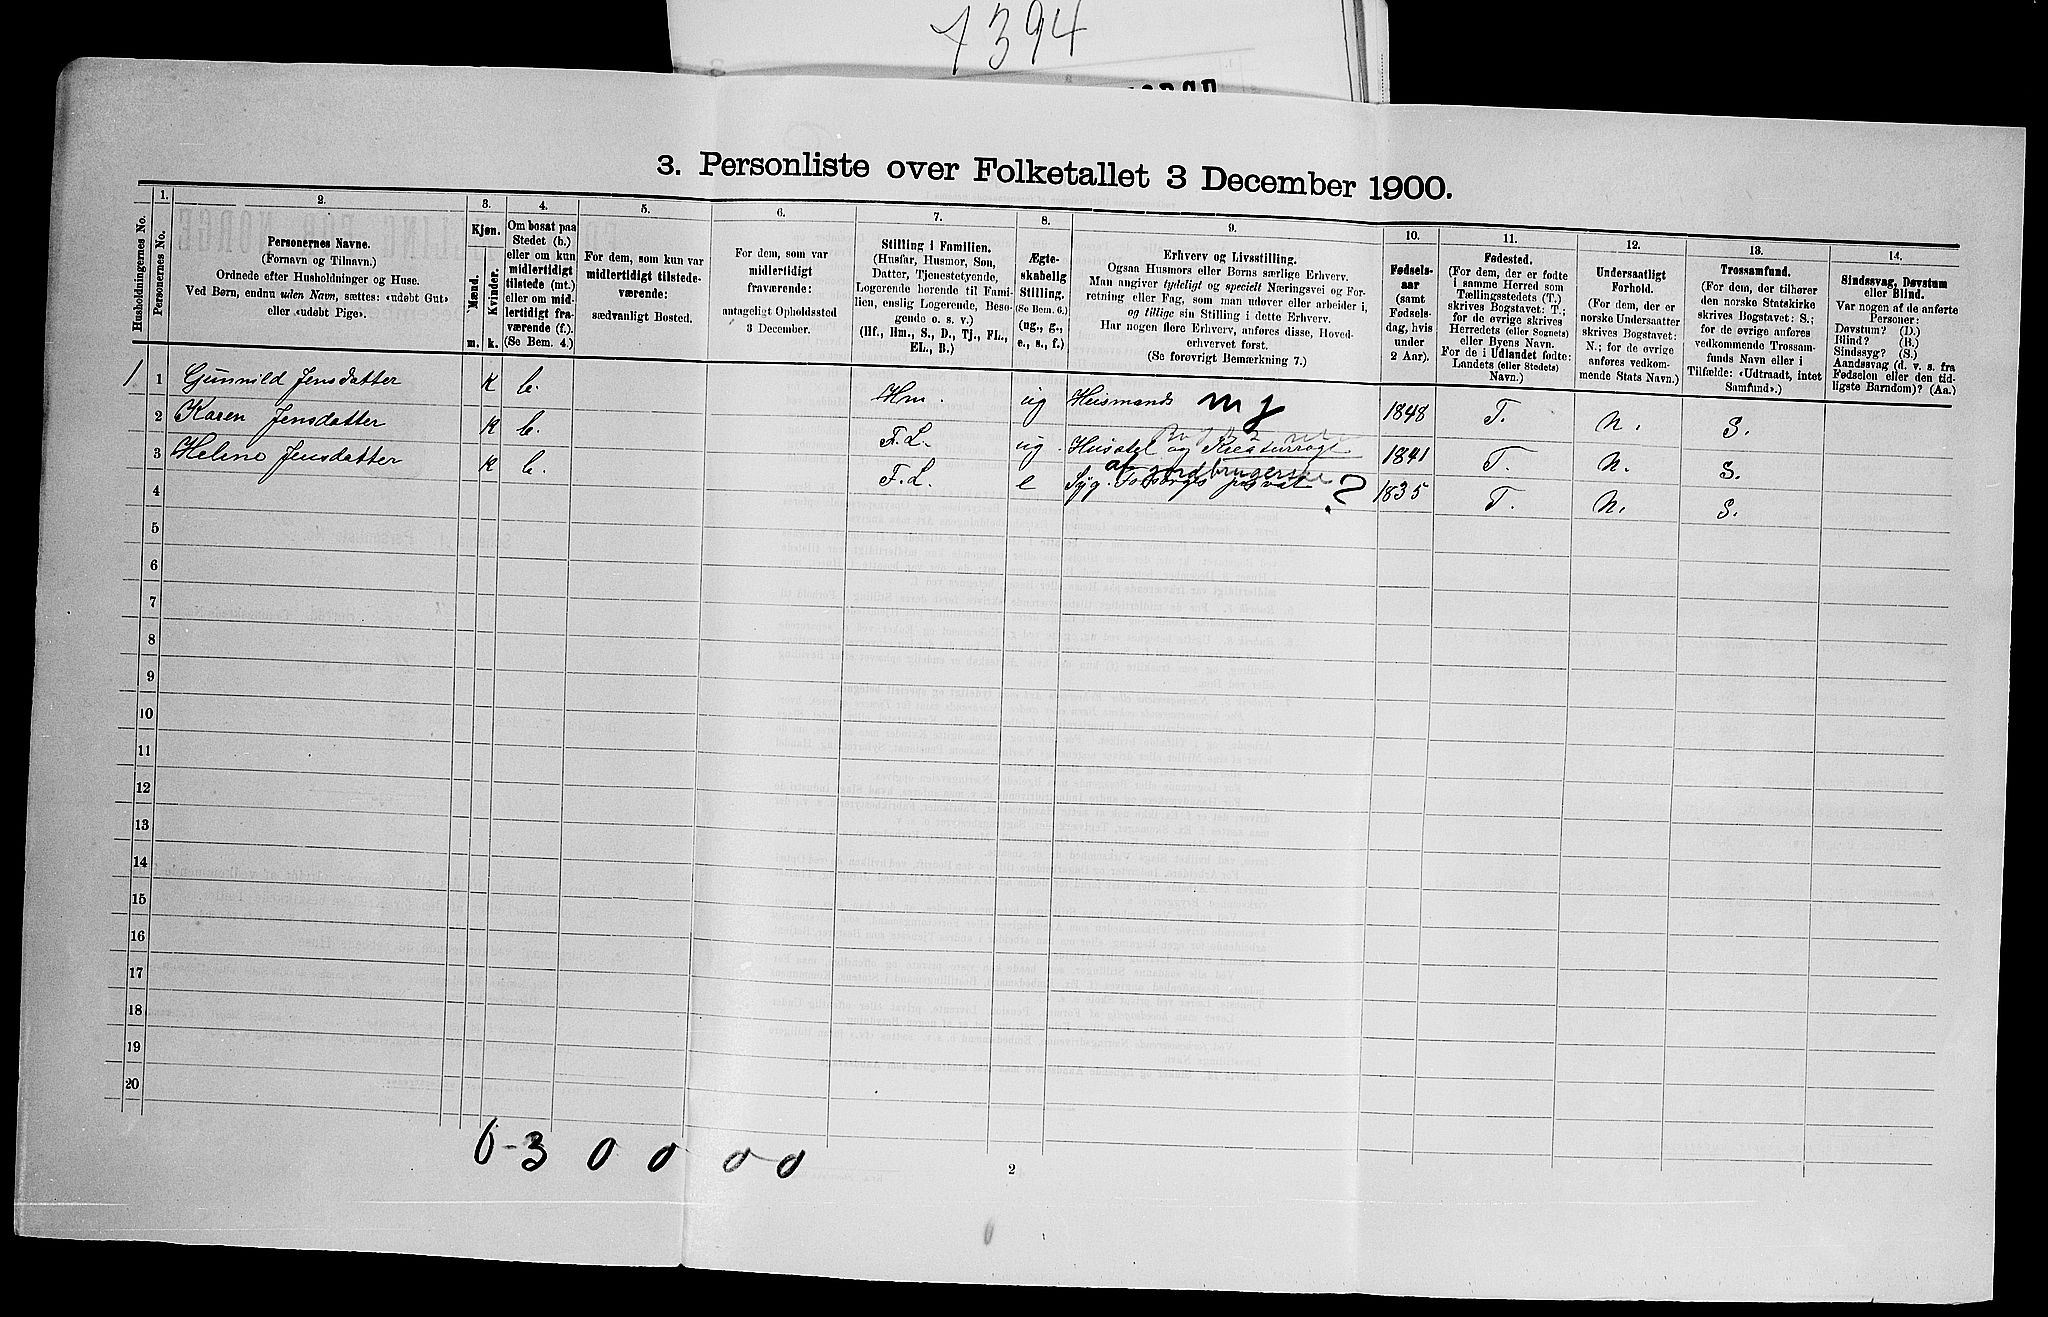 7394
3. Personliste over Folketallet 3 December 1900.
Husholdningernes No.
1.
Personernes No.
2.
Personernes Navne.
(Fornavn og Tilnavn.)
Ordnede efter Husholdninger og Huse.
Ved Børn, endnu uden Navn, sættes: «udøbt Gut»
eller «udøbt Pige».
3.
Kjøn.
Mænd.
Kvinder.
m. k.
4.
Om bosat paa
Stedet (b.)
eller om kun
midlertidigt
tilstede (mt.)
eller om mid-
lertidigt fra-
værende (f.).
(Se Bem. 4.)
5.
For dem, som kun var
midlertidigt tilstede-
værende:
sædvanligt Bosted.
6.
For dem, som var
midlertidigt
fraværende:
antageligt Opholdssted
3 December.
7.
Stilling i Familien.
(Husfar, Husmor, Søn,
Datter, Tjenestetyende,
Logerende hørende til Fami-
lien, enslig Logerende, Besø-
gende o. s. v.)
(Hf., Hm., S., D., Tj., FL.,
EL., B.)
8.
Ægte-
skabelig
Stilling.
(Se Bem. 6.)
(ug., g.,
e., s., f.)
9.
Erhverv og Livsstilling.
Ogsaa Husmors eller Børns særlige Erhverv.
Man angiver tydeligt og specielt Næringsvei og For-
retning eller Fag, som man udøver eller arbeider i,
og tillige sin Stilling i dette Erhverv.
Har nogen flere Erhverv, anføres disse, Hoved-
erhvervet først.
(Se forøvrigt Bemærkning 7.)
10.
Fødsels-
aar
(samt
Fødsels-
dag, hvis
under
2 Aar).
11.
Fødested.
(For dem, der er fødte
i samme Herred som
Tællingsstedets (T.)
skrives Bogstavet: T.;
for de øvrige skrives
Herredets (eller Sognets)
eller Byens Navn.
For de i Udlandet fødte:
Landets (eller Stedets)
Navn.)
12.
Undersaatligt
Forhold.
(For dem, der er
norske Undersaatter
skrives Bogstavet:
N.; for de øvrige
anføres vedkom-
mende Stats Navn.)
13.
Trossamfund.
(For dem, der tilhører
den norske Statskirke
skrives Bogstavet: S.;
for de øvrige anføres
vedkommende Trossam-
funds Navn eller i
Tilfælde: «Udtraadt, intet
Samfund».)
14.
Sindssvag, Døvstum
eller Blind.
Var nogen af de anførte
Personer:
Døvstum? (D.)
Blind? (B.)
Sindssyg? (S.)
Aandssvag (d. v. s. fra
Fødselen eller den tid-
ligste Barndom)? (Aa.)
1 1 Gunnild Jensdatter K b. Hm. ug Husmands mj 1848 T. N. S.
2 Karen Jensdatter K b. F.L. ug. Husstel og Kreaturrøgt 1841 T. N. S.
3 Helene Jensdatter K b. F.L. e Syg. Forsørges privat ? 1835 T. N. S.
4
5
6
7
8
9
10
11
12
13
14
15
16
17
18
19
20
0-3 0 0 0 0
2